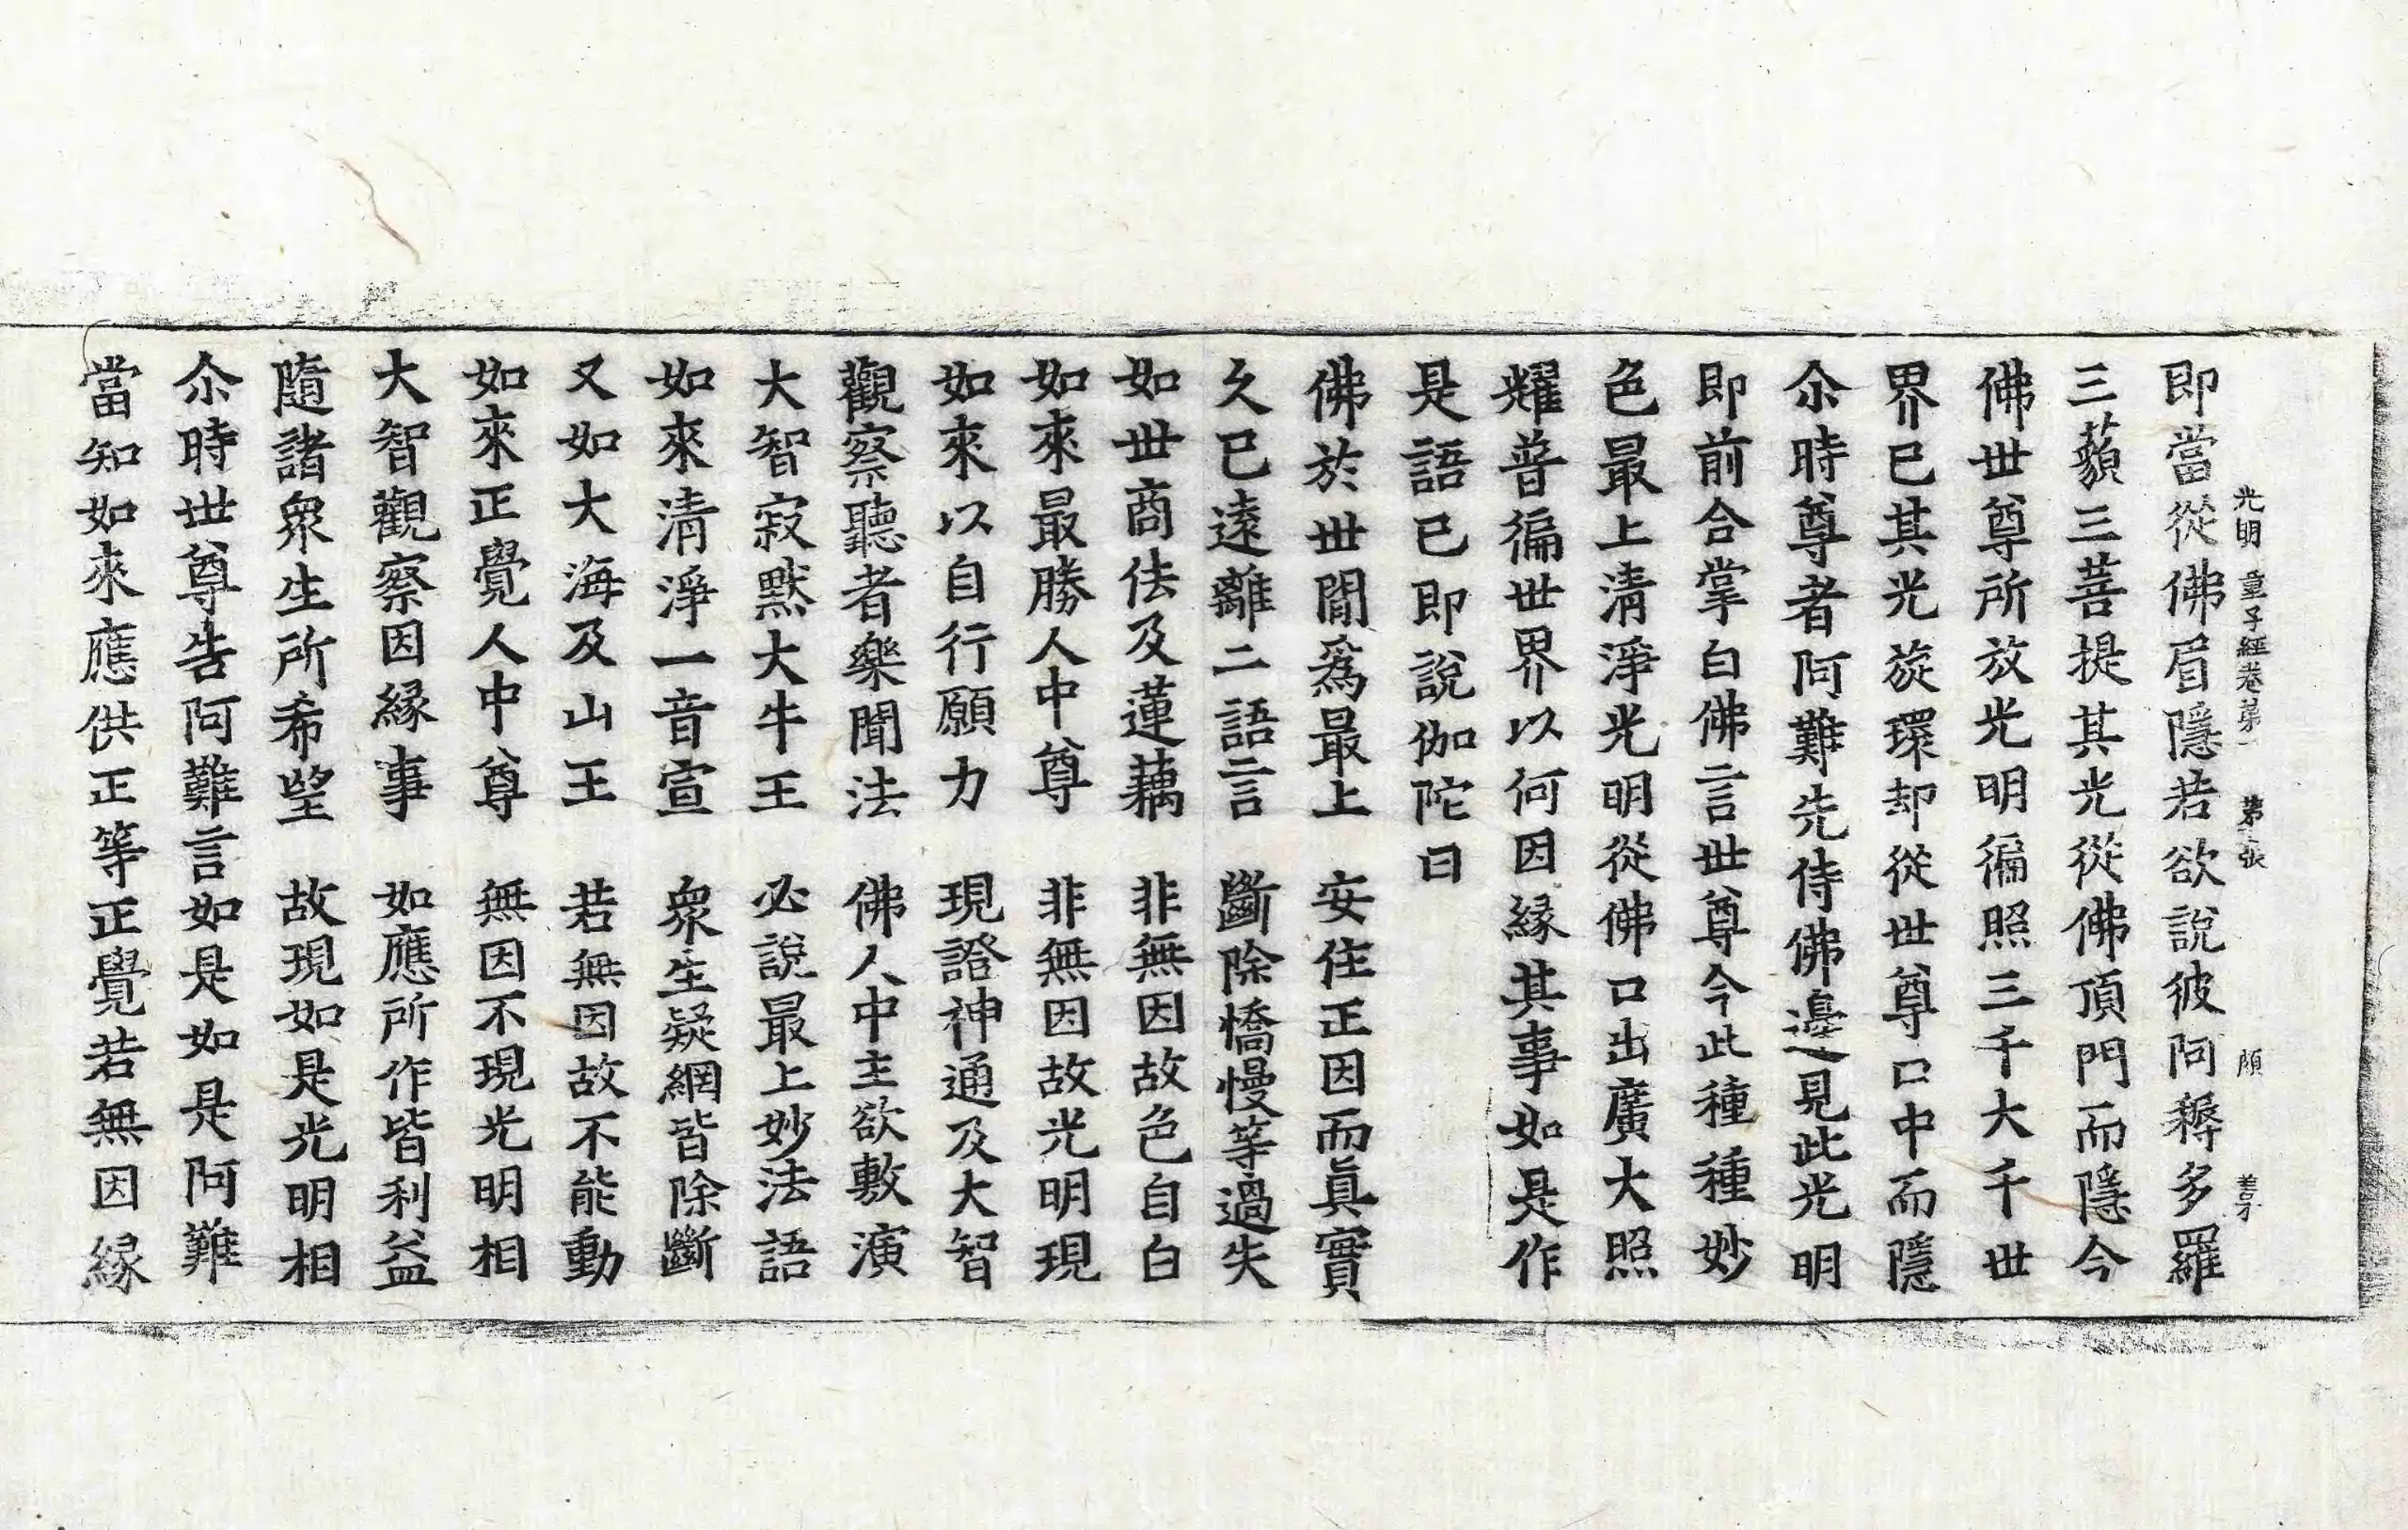 光明童子經卷第一 第 張 頎
即當從佛眉隱若欲說彼阿耨多羅
三藐三菩提其光從佛頂門而隱今
佛世尊所放光明徧照三千大千世
界已其光旋環却從世尊口中而隱
尒時尊者阿難先侍佛邊見此光明
即前合掌白佛言世尊今此種種妙
色最上清淨光明從佛口出廣大照
耀普徧世界以何因緣其事如是作
是語已即說伽陀曰
佛於世間爲最上 安住正因而眞實
久已遠離二語言 斷除憍慢等過失
如世商佉及蓮藕 非無因故色自白
如來最勝人中尊 非無因故光明現
如來以自行願力 現證神通及大智
觀察聽者樂聞法 佛人中主欲敷演
大智寂默大牛王 必說最上妙法語
如來清淨一音宣 衆生疑網皆除斷
又如大海及山王 若無因故不能動
如來正覺人中尊 無因不現光明相
大智觀察因緣事 如應所作皆利益
隨諸衆生所希望 故現如是光明相
尒時世尊告阿難言如是如是阿難
當知如來應供正等正覺若無因緣